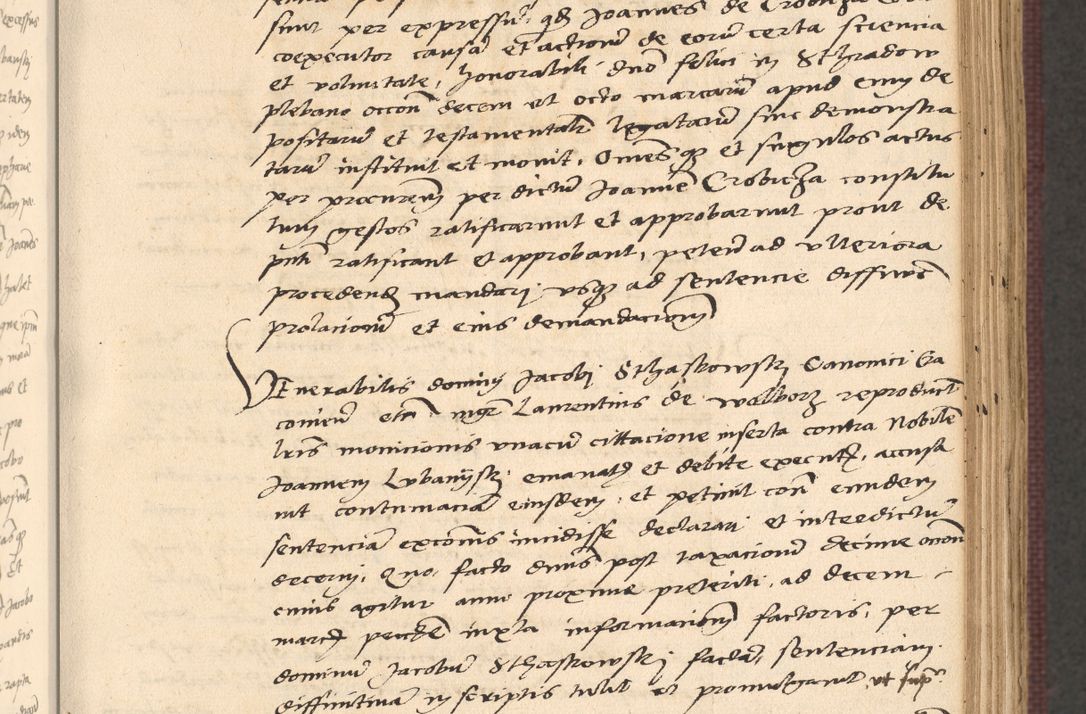 sint per expressum, qd Joannes de Crobicza
coexecutor causam et actionem de eorum certa sciencia
et voluntate, honorabili dno felici in Sthradow
plebano occone decem et octo marcarum apud eum de
positarum et testamentaliter legatarum sine demonstra
tarum instituit et monit, Omesqz et singulos actus
per procurem per dictum Joannem Crobicza constitu
tum gestos ratificarunt et approbarunt prout de
pnti ratificant et approbant, petend ad ulteriora
procedend mandari usqz ad sentencie diffinite
prolacionem et eius demandacionem
Venerabilis domini Jacobi Sthaskowski Canonici Cra
coviem etc. mgr Laurentius de Walborz reproduct
lris monicionis unacum cittacione inserta contra Nobilem
Joannem Lubanyski emanatis et debite executis, accusa
vit contumaciam eiusdem, et petiit eom eundem
sentenciam excomis incidisse declarari et interdictum
decerni, Quo facto dnus post taxacionem decime occone
cuius agitur anni proxime preteriti, ad decem
marcas pecuniae iuxta informacionem factoris, per
dominum Jacobum Sthaskowski factam, sentenciam
diffinitivam in scriptis tulit et promulgavit, ut supra